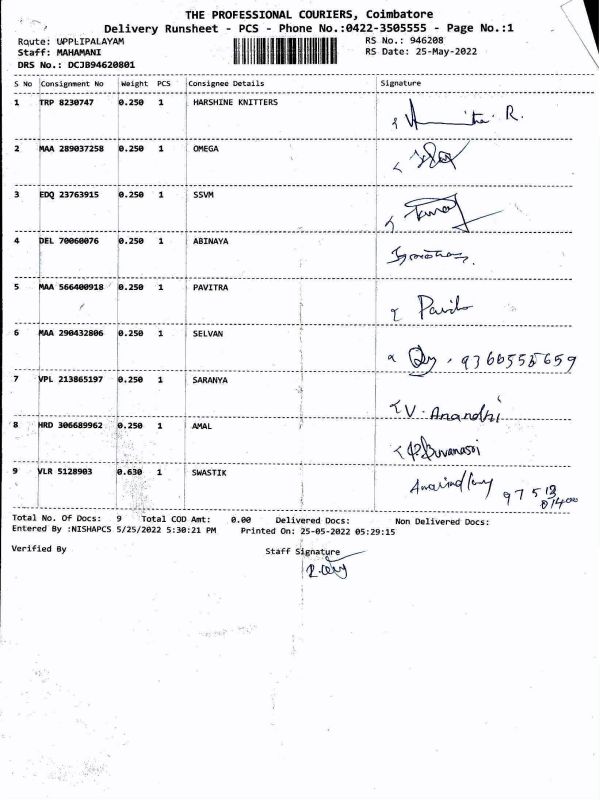 THE PROFESSIONAL COURIERS, Coimbatore
Delivery Runsheet - PCS - Phone No.:0422-3505555 - Page No.:1
Route: UPPLIPALAYAM RS No.: 946208
Staff: MAHAMANI RS Date: 25-May-2022
DRS No.: DCJB94620801
S No Consignment No Weight PCS Consignee Details Signature
1 TRP 8230747 0.250 1 HARSHINE KNITTERS R.
2 MAA 289037258 0.250 1 OMEGA
3 EDQ 23763915 0.250 1 SSVM
4 DEL 70060076 0.250 1 ABINAYA
5 MAA 566400918 0.250 1 PAVITRA
6 MAA 290432806 0.250 1 SELVAN
7 VPL 213865197 0.250 1 SARANYA V. Anandhi
8 HRD 306689962 0.250 1 AMAL
9 VLR 5128903 0.630 1 SWASTIK
Total No. Of Docs: 9 Total COD Amt: 0.00 Delivered Docs: Non Delivered Docs:
Entered By :NISHAPCS 5/25/2022 5:30:21 PM Printed On: 25-05-2022 05:29:15
Verified By Staff Signature